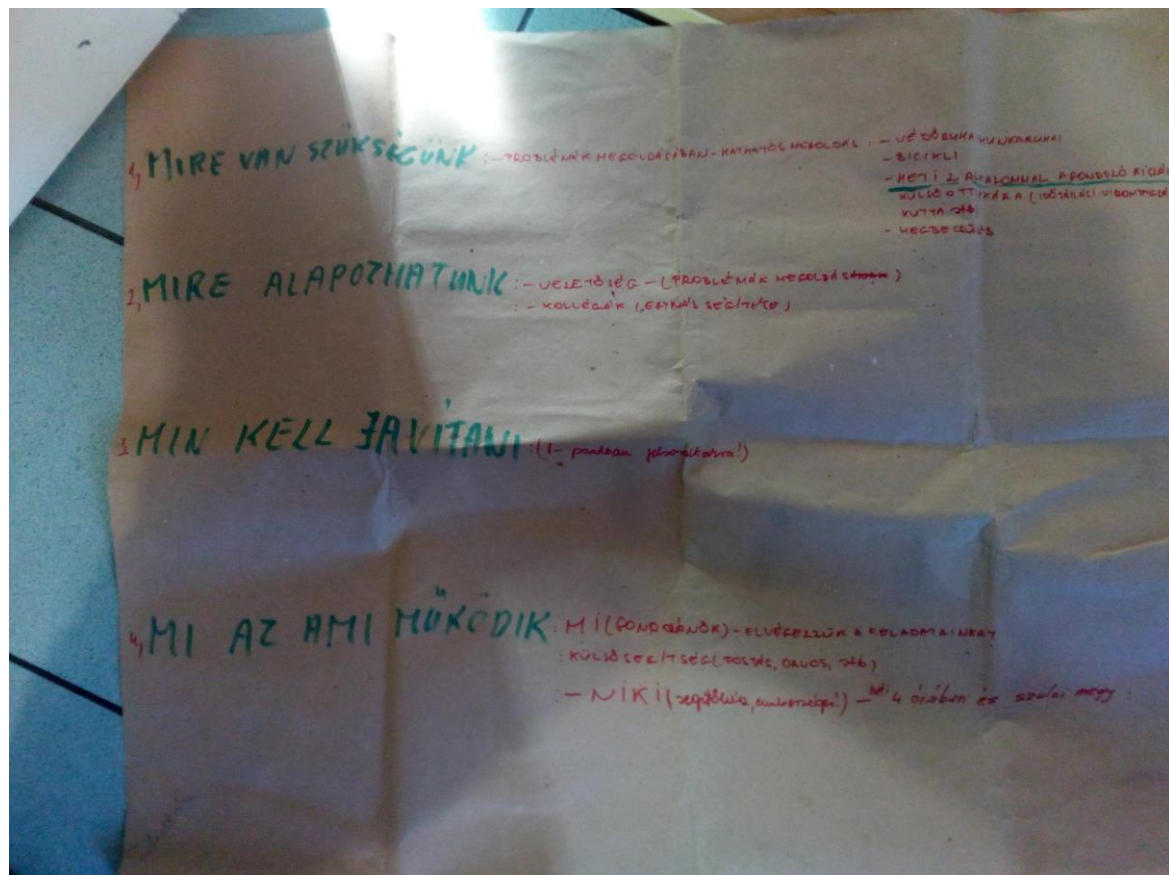 1, MIRE VAN SZÜKSÉGÜNK : - PROBLÉMÁK MEGOLDÁSÁBAN - HATHATÓS MEGOLDÁS : - VÉDŐRUHA MUNKARUHA
- BICIKLI
- HETI 2 ALKALOMMAL A GONDOZÓ
KUTYA STB
- MEGBECSÜLÉS
2, MIRE ALAPOZHATUNK : - VEZETŐSÉG - (PROBLÉMÁK MEGOLDÁSA)
: - KOLLÉGÁK (EGYMÁS SEGÍTÉSE)
3. MIN KELL JAVÍTANI : (1- pontban felsoroltakra!)
4, MI AZ AMI MŰKÖDIK : MI (GONDOZÓNŐK) - ELVÉGEZZÜK A FELADATAINKAT
: KÜLSŐ SEGÍTSÉG (POSTÁS, ORVOS, STB)
: - NIKI ( ) - 4 órában és szólni megy